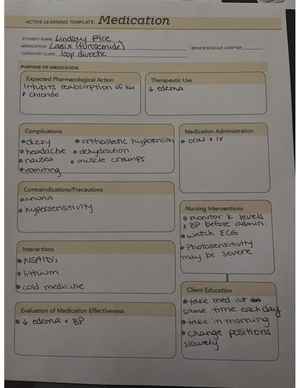 ACTIVE LEARNING TEMPLATE: Medication
STUDENT NAME Lindsay Rice
MEDICATION Lasix (furosemide)
REVIEW MODULE CHAPTER
CATEGORY CLASS loop diuretic
PURPOSE OF MEDICATION
Expected Pharmacological Action
Inhibits reabsorption of Na
+ chloride
Therapeutic Use
↓ edema
Complications
• dizzy
• headache
• nausea
vomiting
• orthostatic hypotension
• dehydration
• muscle cramps
Medication Administration
• oral + IV
Contraindications/Precautions
• anuria
• hypersensitivity
Nursing Interventions
• monitor K levels
+ BP before admin
• watch ECG
• Photosensitivity
may be severe
Interactions
• NSAIDs
• lithium
• cold medicine
Client Education
• take med at
same time each day
• take in morning
• change positions
slowely
Evaluation of Medication Effectiveness
• ↓ edema + BP